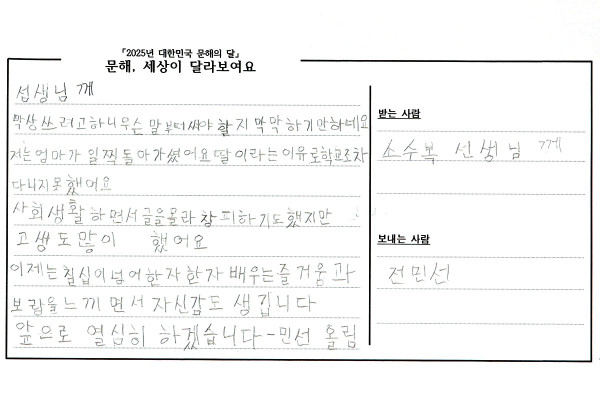 『2025년 대한민국 문해의 달』
문해, 세상이 달라보여요
섭생님께
막상 쓰려고하니무슨 말부터써야 할지 막막하기만하네요
저는엄마가 일찍돌아가셨어요딸이라는이유로학교조차
다니지못했어요
사회생활하면서글을몰라창피하기도했지만
고생도많이 했어요
이제는칠십이넘어한자한자배우는즐거움과
보람을느끼면서자신감도 생깁니다
앞으로 열심히 하겠습니다-민선 올림
받는 사람
소수복 선생님께
보내는 사람
전민선